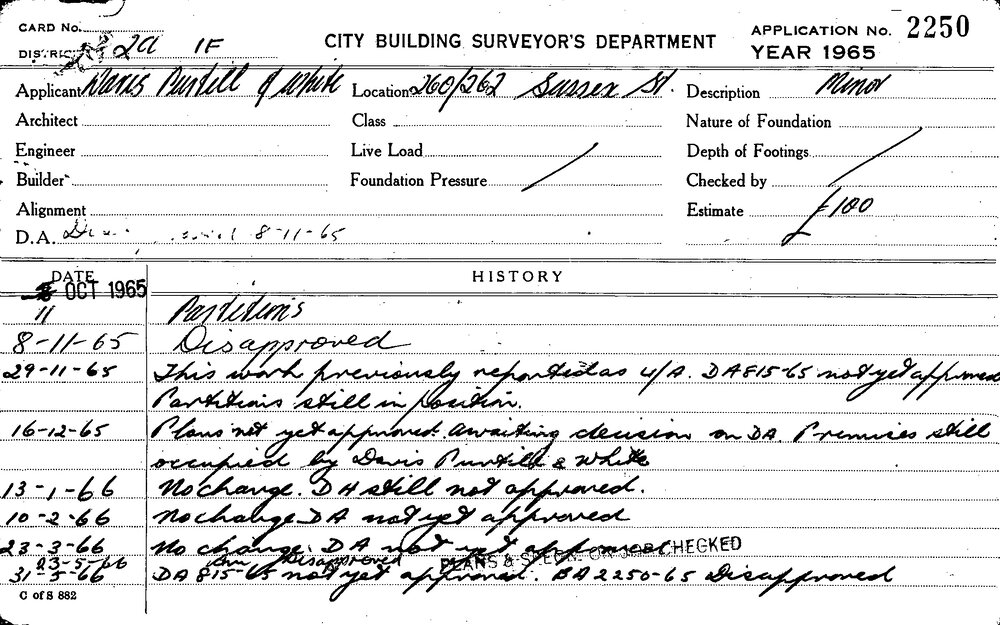 CARD No.
DISTRICT 2a 1F
CITY BUILDING SURVEYOR'S DEPARTMENT
APPLICATION No. 2250
YEAR 1965
Applicant Davis Purtill & White Location 260/262 Sussex St. Description Minor
Architect Class Nature of Foundation
Engineer Live Load Depth of Footings
Builder Foundation Pressure Checked by
Alignment Estimate £100
D.A. 8-11-65
DATE HISTORY
OCT 1965
11 Partitions
8-11-65 Disapproved
29-11-65 This work previously reported as U/A. DA815-65 not yet approved
Partitions still in position.
16-12-65 Plans not yet approved. Awaiting decision on DA. Premises still
occupied by Davis Purtill & White
13-1-66 No change. DA still not approved.
10-2-66 No change DA not yet approved
23-3-66 No change. DA not yet approved
PLANS & SPECS. ON JOB CHECKED
23-5-66 Disapproved
31-5-66 DA 815-65 not yet approved. BA 2250-65 Disapproved
C of S 882